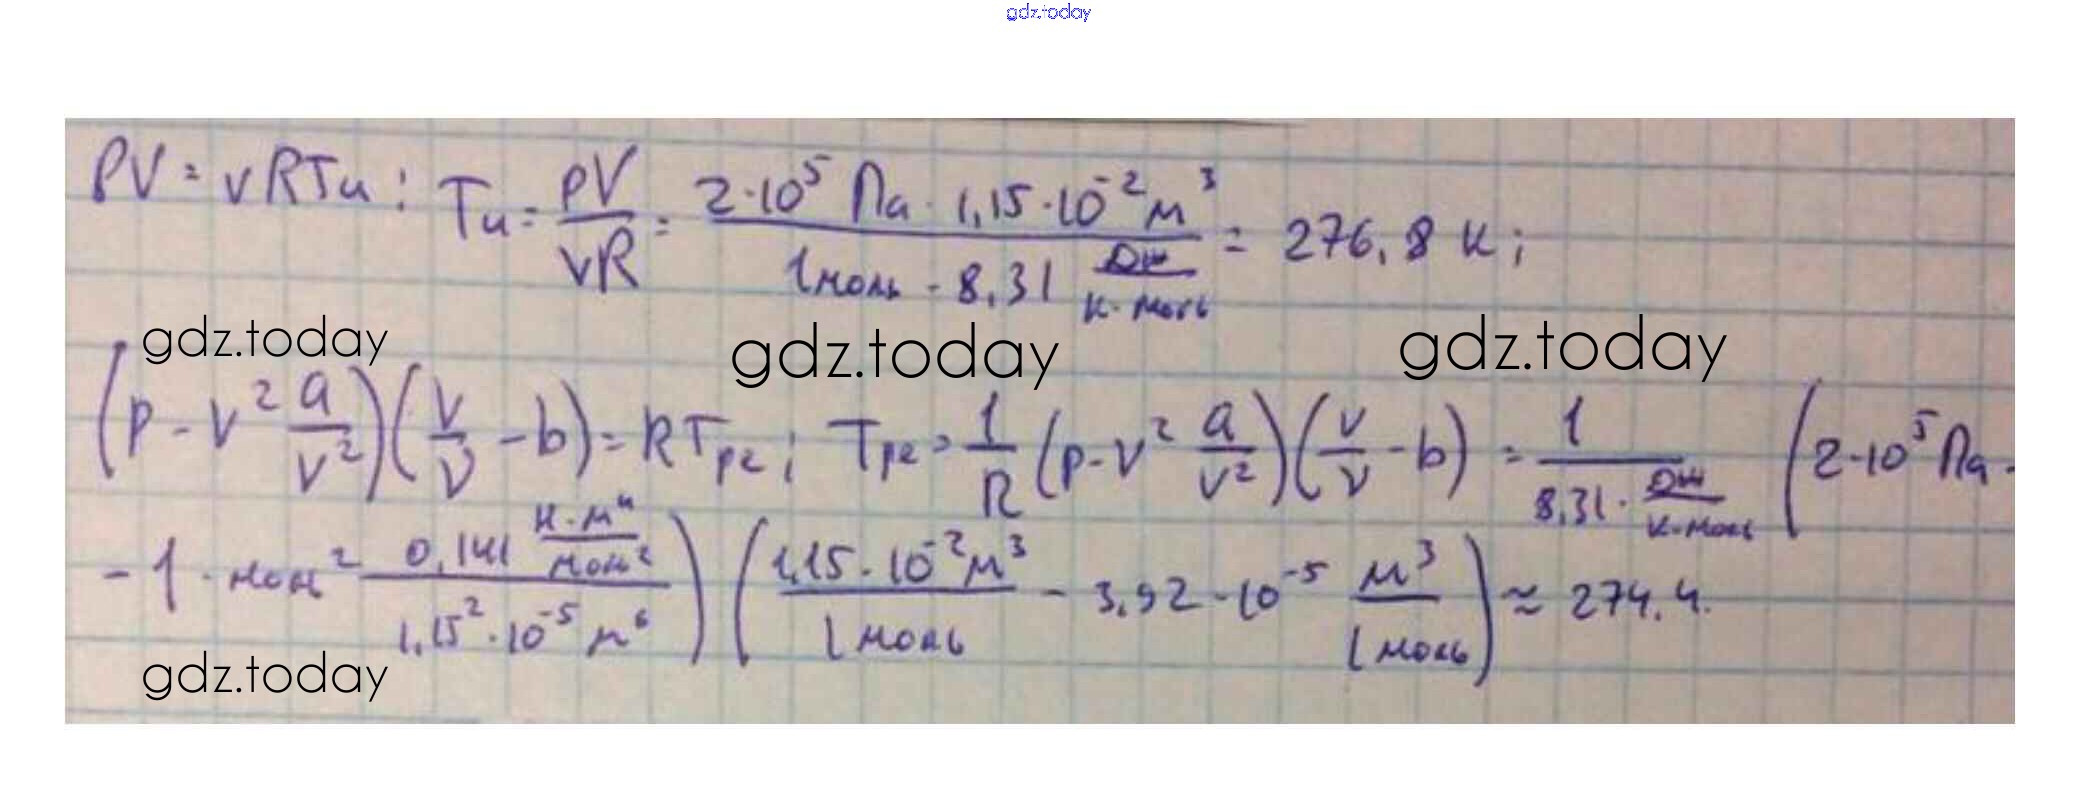 gdz.today
PV = νRTи ; Tи = pV/νR = 2·10⁵ Па · 1,15·10⁻² м³ / 1 моль · 8,31 Дж/К·моль = 276,8 К;
gdz.today gdz.today gdz.today
(p - ν² a/V²)(V/ν - b) = RTрг ; Tрг = 1/R (p - ν² a/V²)(V/ν - b) = 1/8,31 · Дж/К·моль (2·10⁵ Па -
- 1 · моль² 0,141 Н·м⁴/моль² / 1,15²·10⁻⁵ м⁶) (1,15·10⁻² м³/1 моль - 3,92·10⁻⁵ м³/1 моль) ≈ 274,4.
gdz.today